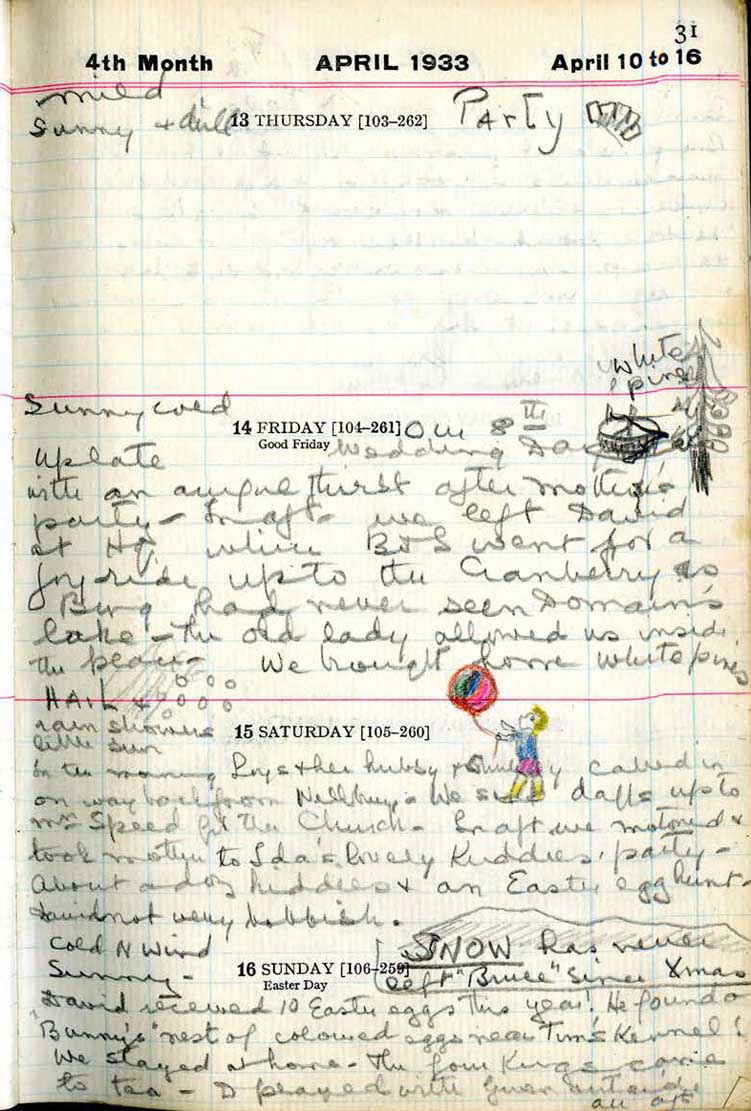 31
4th Month APRIL 1933 April 10 to 16
mild
Sunny + dull 13 THURSDAY [103–262] Party
white
pine
Sunny cold
14 FRIDAY [104–261] Our 8th
Good Friday Wedding Day
Up late
with an awful thirst after mother's
party – In aft. we left David
at Hq. while B + S went for a
joy ride up to the Cranberry as
Bing had never seen Domain's
lake – the old lady allowed us inside
the place – We brought home white pines
HAIL +
rain showers
little sun
15 SATURDAY [105–260]
In the morning Loys + her hubby + called in
on way back from . We daffs up to
Mrs Speed for the Church – In aft we motored +
took mother to Ida's lovely Kiddies' party –
About a doz kiddies + an Easter egg hunt –
David not very bobbish.
Cold N Wind
Sunny –
SNOW has never
left "Bruce" since Xmas
16 SUNDAY [106–259]
Easter Day
David received 10 Easter eggs this year! He found a
"Bunny's" nest of coloured eggs near Tim's Kennel!
We stayed at home – The four Kings came
to tea – D played with Gwen outside
all aft